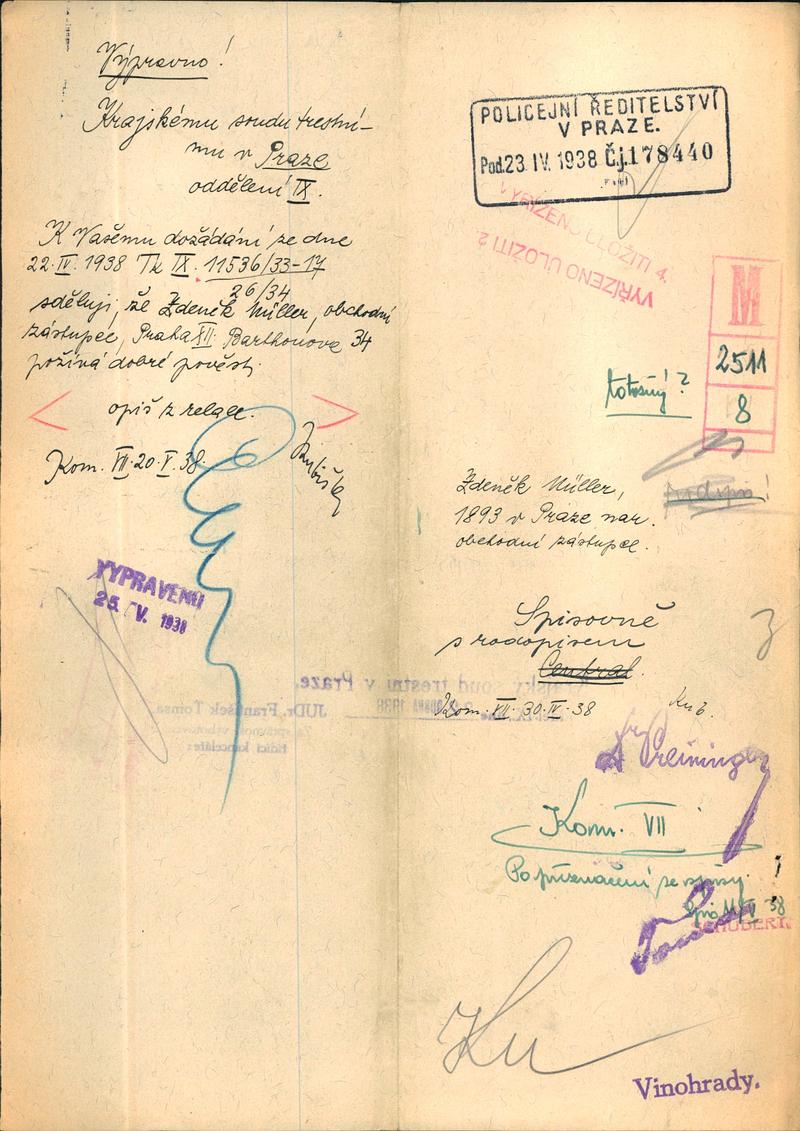 Výpravno!
Krajskému soudu trestní-
mu v Praze
oddělení IX.
K Vašemu dožádání ze dne
22.IV.1938 Tk IX. 11536/33-17
26/34
sděluji, že Zdeněk Müller, obchodní
zástupce, Praha XII. Barthonova 34
požívá dobré pověsti.
opiš z relace.
Kom. VII. 20.V.38.
VYPRAVENO
25. V. 1938
POLICEJNÍ ŘEDITELSTVÍ
V PRAZE.
Pod. 23. IV. 1938 Čj. 178440
VYŘÍZENO ULOŽITI 4.
VYŘÍZENO ULOŽITI 2
M
2511
8
totožný?
Zdeněk Müller,
1893 v Praze nar.
obchodní zástupce.
Spisovně
s rodopisem
Central.
Kom. VII. 30.IV.38
Kub.
Krajský soud trestní v Praze,
JUDr. František Tomsa
řídící kanceláře:
Kom. VII
Po příznačení se spisy
38
SCHUBERT.
Vinohrady.